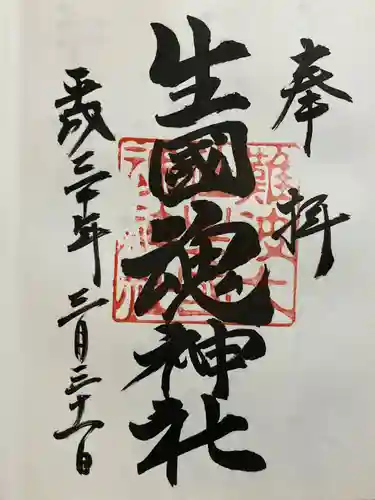 奉拝
生國魂神社
平成三十年三月三十一日